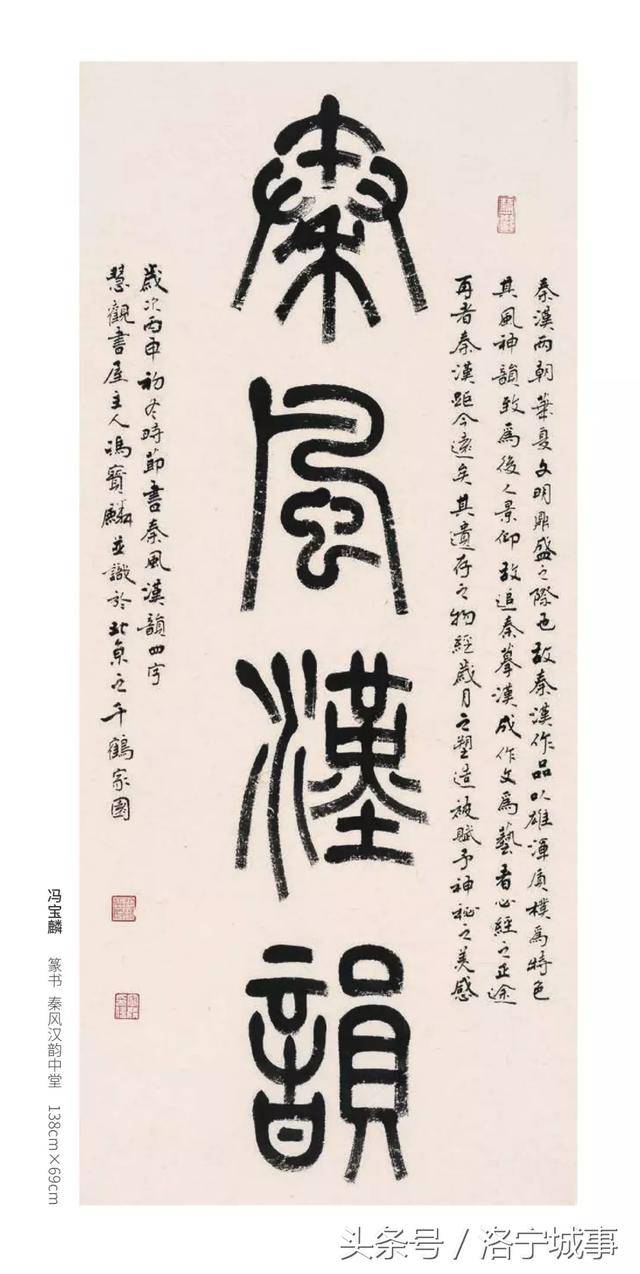 秦風漢韻
秦漢兩朝華夏文明鼎盛之際也故秦漢作品以雄渾质樸為特色
其風神韻致為後人景仰故追秦摹漢成作文為藝者必經之正途
再者秦漢距今遠矣其遺存之物經歲月之塑造被賦予神秘之美感
歲次丙申初冬時節書秦風漢韻四字
慧觀書屋主人馮寶麟並識於北京之千鶴家園
冯宝麟 篆书 秦风汉韵中堂 138cm×69cm
头条号 / 洛宁城事